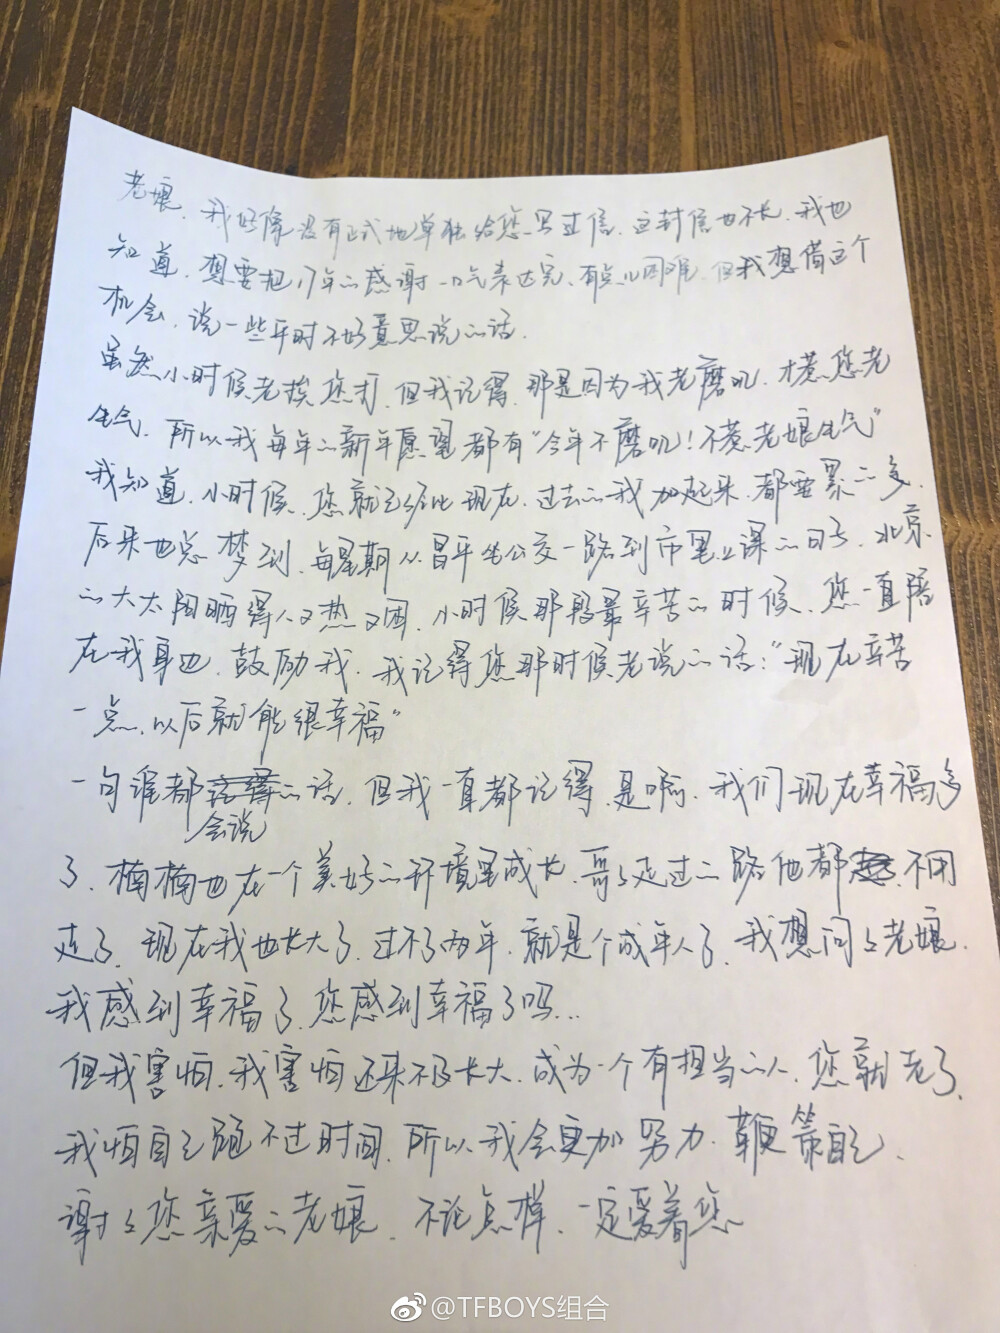 老娘，我好像没有正式地单独给您写过信，这封信也不长，我也
知道，想要把17年的感谢一口气表达完，有点儿困难，但我想借这个
机会，说一些平时不好意思说的话。
虽然小时候老挨您打，但我记得，那是因为我老磨叽，才惹您老
生气，所以我每年的新年愿望都有“今年不磨叽！不惹老娘生气”
我知道，小时候，您就已经比现在，过去的我加起来，都要累的多，
后来也总梦到，每星期从昌平坐公交一路到市里上课的日子，北京
的大太阳晒得人又热又困，小时候那段最辛苦的时候，您一直陪
在我身边，鼓励我，我记得您那时候老说的话：“现在辛苦
一点，以后就能很幸福”
一句谁都会说的话，但我一直都记得，是啊，我们现在幸福多
了，楠楠也在一个美好的环境里成长，哥哥走过的路他都不用
走了，现在我也长大了，过不了两年，就是个成年人了，我想问问老娘，
我感到幸福了，您感到幸福了吗...
但我害怕，我害怕还来不及长大，成为一个有担当的人，您就老了，
我怕自己跑不过时间，所以我会更加努力，鞭策自己，
谢谢您亲爱的老娘，不论怎样，一定爱着您
@TFBOYS组合